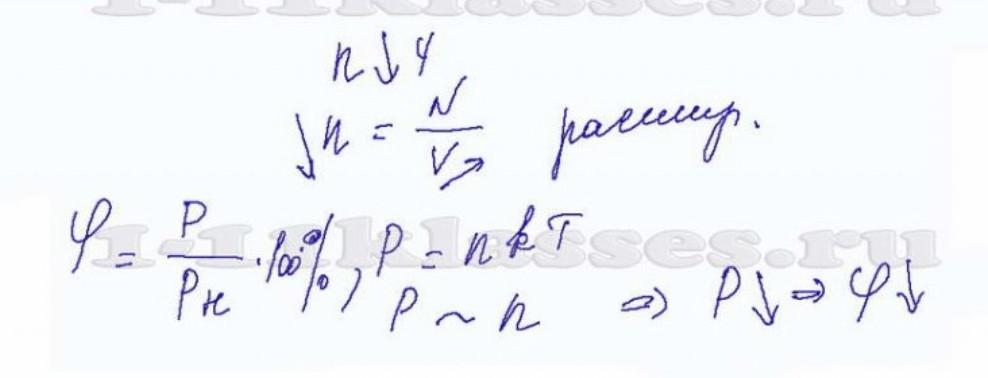 1-11klasses.ru
n ↓ 4
↓ n = N / V ↗ расшир.
1-11klasses.ru
φ = P / Pн · 100%, P = n k T
P ~ n ⇒ P↓ ⇒ φ↓